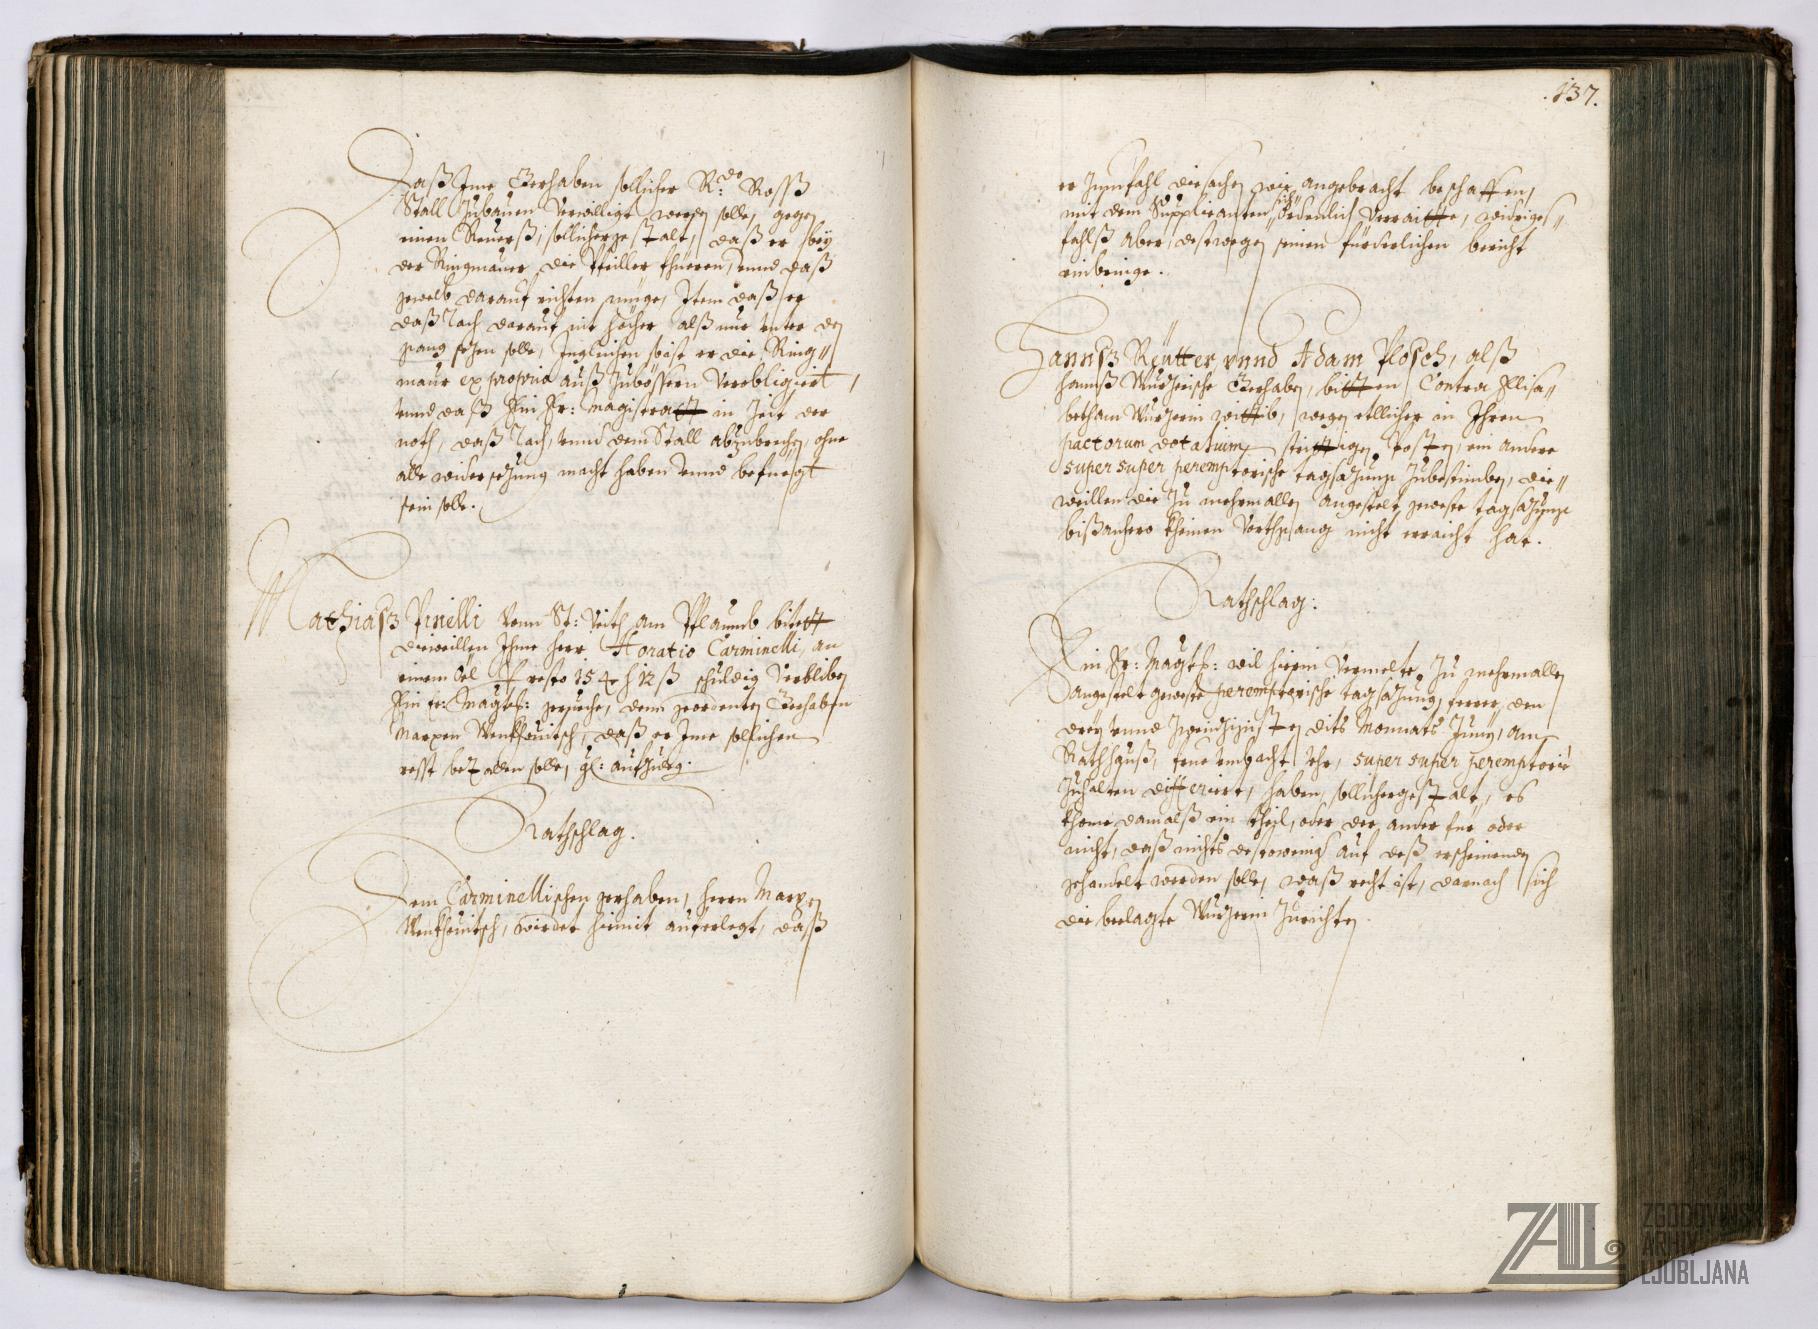 Daß Ime Gerhaben sollicher R:do Rosß
Stall Zubauen Verwilligt werden solle, gegen
einen Reuerß, sollichergestalt, daß er bey
der Ringmauer die Pfiller fhüeren, vnnd daß
gewelb darauf richten müge, Item daß er
daß Tach darauf nit höcher alß nur vnter den
gang sezen solle, Ingleichen sőɓe er die Ring//
maur ex proprio auß Zubössern Verobligiert,
vnnd daß Ein Er: Magistratt in Zeit der
noth, daß Tach, vnnd dem Stall abzubrechen, ohne
alle widersezung macht haben vnnd befuegt
sein solle.
Mathiasß Pinelli vonn St: Veith am Pflaumb bitett
dieweillen Ihme herr Horatio Carminelli, an
einem Öel resto 154 f 12 ß schuldig Verbliben
Ein Er: Magts: geruehe, dem geordenten Gerhaben
Marxen Wenkhouitsch, daß er Ime sollichen
resst bezallen solle, gl: aufzuleg.
Rathschlag.
Dem Carminellischen gerhaben, herrn Marxen
Wenkhouitsch, wirdet hiemit auferlegt, daß
.137.
er Zumfahl die sachen wie angebracht beschaffen,
mit dem Supplicanten sich Ordenlich Verraitte, widriges//
fahlß aber, destwegen seinen fürderlichen bericht
einbringe.
Hannß Reütter vnnd Adam Plosch, alß
hannß Wurzerische Gerhaben, bitten Contra Elisa//
betham Wurzerin wittib, wegen etlicher in Ihren
pactorum dotalium strittigen Posten, ein andere
super super peremptorische tagsazung Zubestimben, die//
weillen die Zu mehrmallen angestelt geweste tagsazung
bißanhero kheinen Vorthgang nicht erraicht hat.
Rathschlag:
Ein Er: Magts: wil hiemit Vermelte, Zu mehrmallen
angestelt geweste peremptorische tagsazung ferrer, den
drey vnnd Zwenzigisten dits Monnats Juny, am
Rathhauß, frue vmb acht Vhr, super super peremptorie
Zuhalten differiert, haben, sollichergestalt, es
khome damalß ein theil, oder der ander für oder
nicht, daß nichts destoweniger auf deß erscheinenden
gehandelt werden solle, waß recht ist, darnach sich
die beclagte Wurzerin Zurichten.
ZAL ZGODOVINSKI
ARHIV
LJUBLJANA